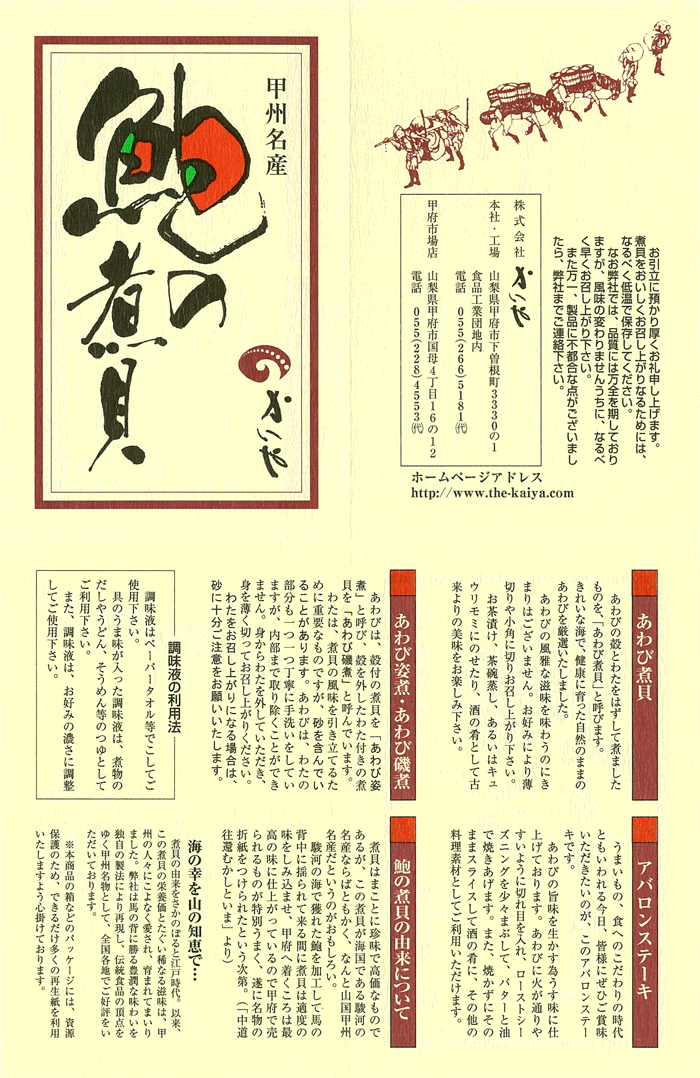 甲州名産
鮑の
煮貝
かいや
お引立に預かり厚くお礼申し上げます。
煮貝をおいしくお召し上がりなるためには、
なるべく低温で保存してください。
なお弊社では、品質には万全を期しており
ますが、風味の変わりませんうちに、なるべ
く早くお召し上がり下さい。
また万一、製品に不都合な点がございまし
たら、弊社までご連絡下さい。
株式会社 かいや
本社・工場 山梨県甲府市下曽根町3330の1
食品工業団地内
電話 055(266)5181㈹
甲府市場店 山梨県甲府市国母4丁目16の12
電話 055(228)4553㈹
ホームページアドレス
http://www.the-kaiya.com
あわび煮貝
あわびの殻とわたをはずして煮ました
ものを、「あわび煮貝」と呼びます。
きれいな海で、健康に育った自然のままの
あわびを厳選いたしました。
あわびの風雅な滋味を味わうのにき
まりはございません。お好みにより薄
切りや小角に切りお召し上がり下さい。
お茶漬け、茶碗蒸し、あるいはキュ
ウリモミにのせたり、酒の肴として古
来よりの美味をお楽しみ下さい。
あわび姿煮・あわび磯煮
あわびは、殻付の煮貝を「あわび姿
煮」と呼び、殻を外したわた付きの煮
貝を「あわび磯煮」と呼んでいます。
わたは、煮貝の風味を引き立てるた
めに重要なものですが、砂を含んでい
ることがあります。あわびは、わたの
部分も一つ一つ丁寧に手洗いをしてい
ますが、内部まで取り除くことができ
ません。身からわたを外していただき、
身を薄く切ってお召し上がりください。
わたをお召し上がりになる場合は、
砂に十分ご注意をお願いいたします。
調味液の利用法
調味液はペーパータオル等でこしてご
使用下さい。
貝のうま味が入った調味液は、煮物の
だしやうどん、そうめん等のつゆとして
ご利用下さい。
また、調味液は、お好みの濃さに調整
してご使用下さい。
アバロンステーキ
うまいもの、食へのこだわりの時代
ともいわれる今日、皆様にぜひご賞味
いただきたいのが、このアバロンステー
キです。
あわびの旨味を生かす為うす味に仕
上げております。あわびに火が通りや
すいように切れ目を入れ、ローストシー
ズニングを少々まぶして、バターと油
で焼きあげます。また、焼かずにその
ままスライスして酒の肴に、その他の
料理素材としてご利用いただけます。
鮑の煮貝の由来について
煮貝はまことに珍味で高価なもので
あるが、この煮貝が海国である駿河の
名産ならばともかく、なんと山国甲州
名産だというのがおもしろい。
駿河の海で獲れた鮑を加工して馬の
背中に揺られて来る間に煮貝は適度の
味をしみ込ませ、甲府へ着くころは最
高の味に仕上がっているので甲府で売
られるものが特別うまく、遂に名物の
折紙をつけられたという次第。(「中道
往還むかしといま」より)
海の幸を山の知恵で…
煮貝の由来をさかのぼると江戸時代。以来、
この煮貝の栄養価とたぐい稀なる滋味は、甲
州の人々にこよなく愛され、育まれてまいり
ました。弊社は馬の背に勝る豊潤な味わいを
独自の製法により再現し、伝統食品の頂点を
ゆく甲州名物として、全国各地でご好評をい
ただいております。
※本商品の箱などのパッケージには、資源
保護のため、できるだけ多くの再生紙を利用
いたしますよう心掛けております。